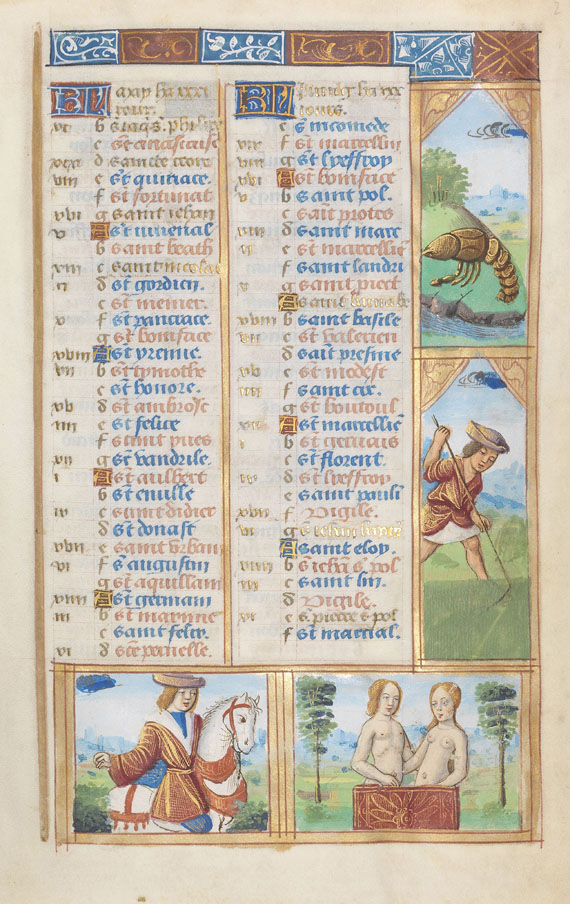 KL may ha xxxi
iours.
vi b s iaqs. philippe
c st anastaise
xix d saincte croix
viii e st quiriace.
f st fortunat
xvi g saint iehan
v A st iuvenal
b saint beath
xiii c saint nicolas
ii d st gordien.
e st meiner.
x f st pancrace.
g st boniface
xviii A st prenne.
vii b st tymothe
c st honore.
xv d st ambrose
iiii e st felice
f saint yves
xii g st vandrile.
i A st aulbert
b st emille
ix c saint didier
d st donast
xvii e saint urban
vi f st augustin
g st aquillam
xiiii A st germain
iii b st marinne
c saint felix.
xi d ste peronelle.
KL Juing ha xxx
iours.
e st nicomede
xix f st marcellin
viii g st lyeffroy
xvi A st boniface
v b saint pol.
c saint protes
xiii d saint marc
ii e st marcellien
f saint landri
x g saint pient
A saint barnabe
xviii b saint basile
vii c st valerien
d saint presme
xv e st modest
iiii f saint cix.
g st boutoul
xii A st marcellien
i b st gervais
c st florent.
ix d st lyeffroy
e saint pauli
xvii f Vigile.
vi g s iehan baptiste
A saint eloy.
xiiii b s. iehan s. pol
iii c saint lin.
d Vigile.
xi e s. pierre s. pol
f st marcial.